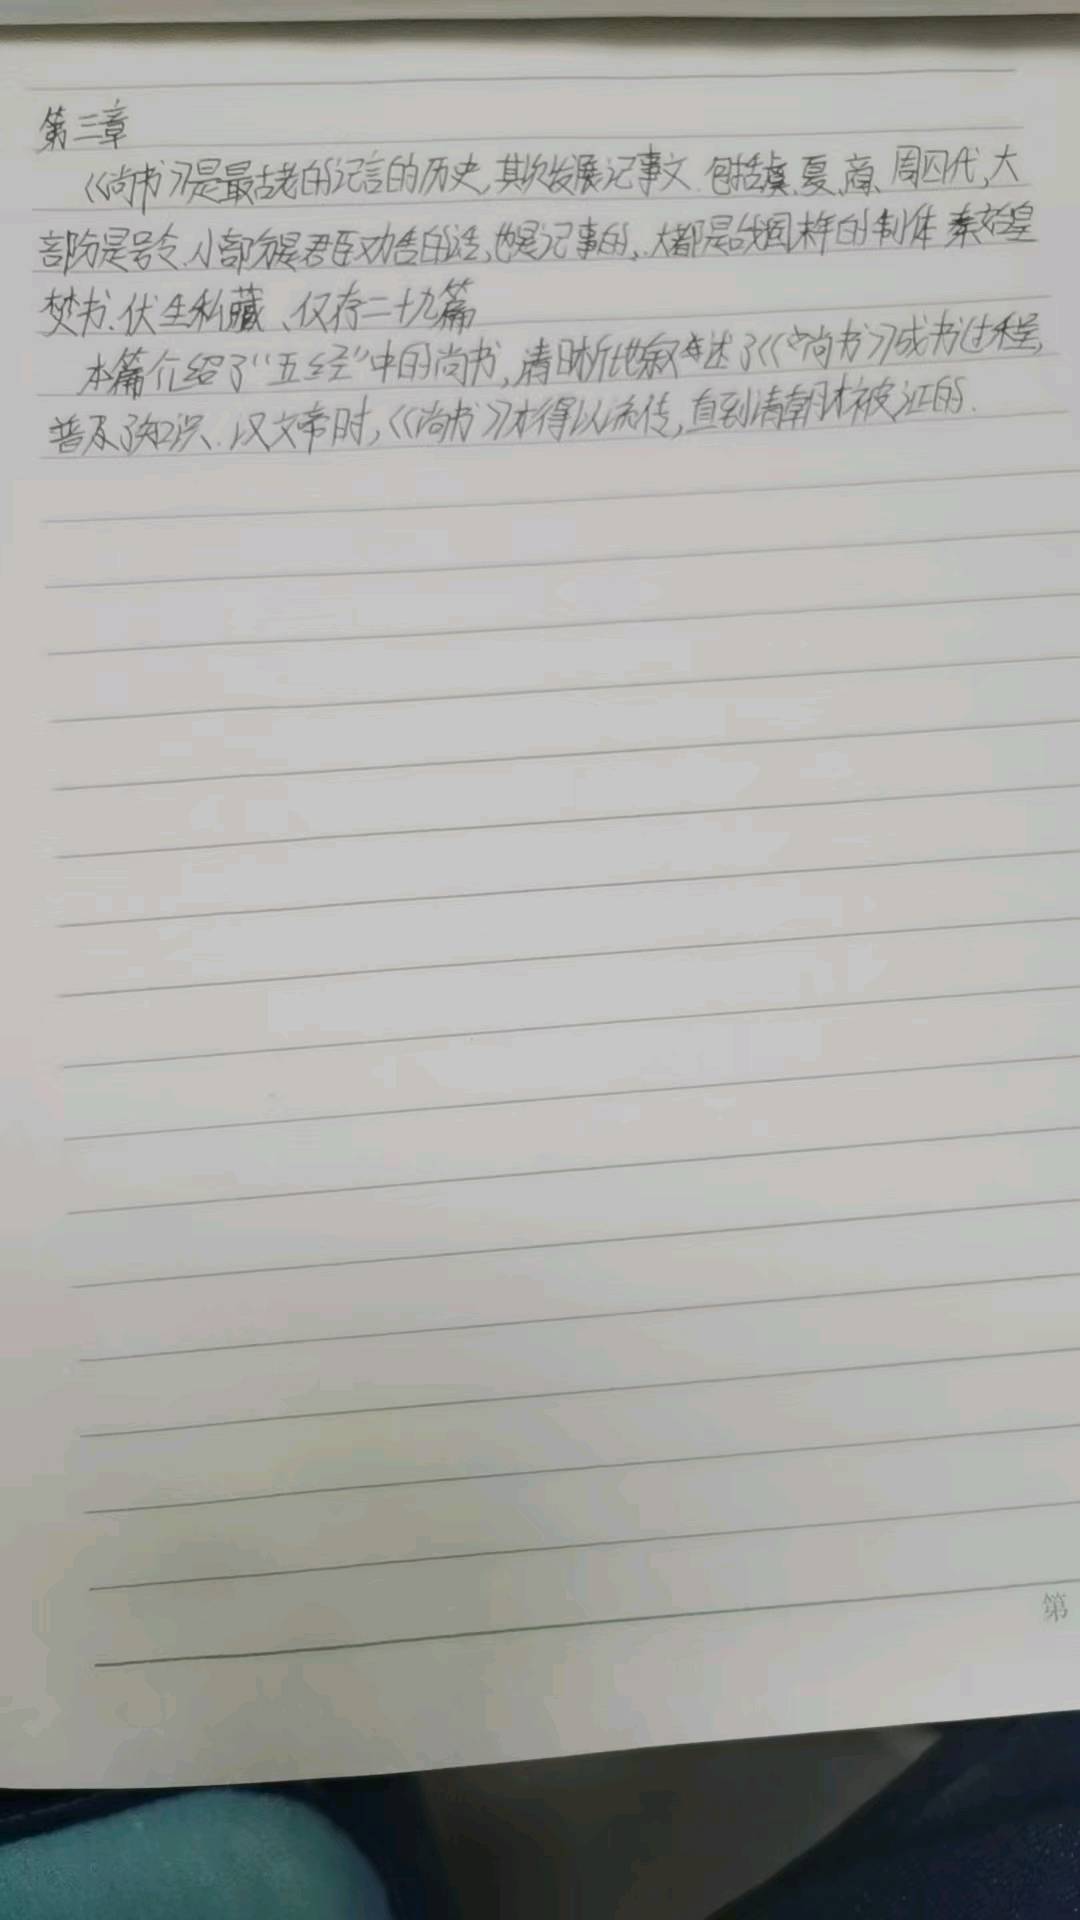 第三章
《尚书》是最古老的记言的历史,其次发展记事文.包括虞、夏、商、周四代,大
部分是号令.小部分是君臣劝告的话,也是记事的,.大都是战国末年的制体 秦始皇
焚书.伏生私藏、仅存二十九篇
本篇介绍了“五经”中的尚书,清晰地叙述了《尚书》成书过程,
普及了知识.汉文帝时,《尚书》才得以流传,直到清朝才被证的.
第